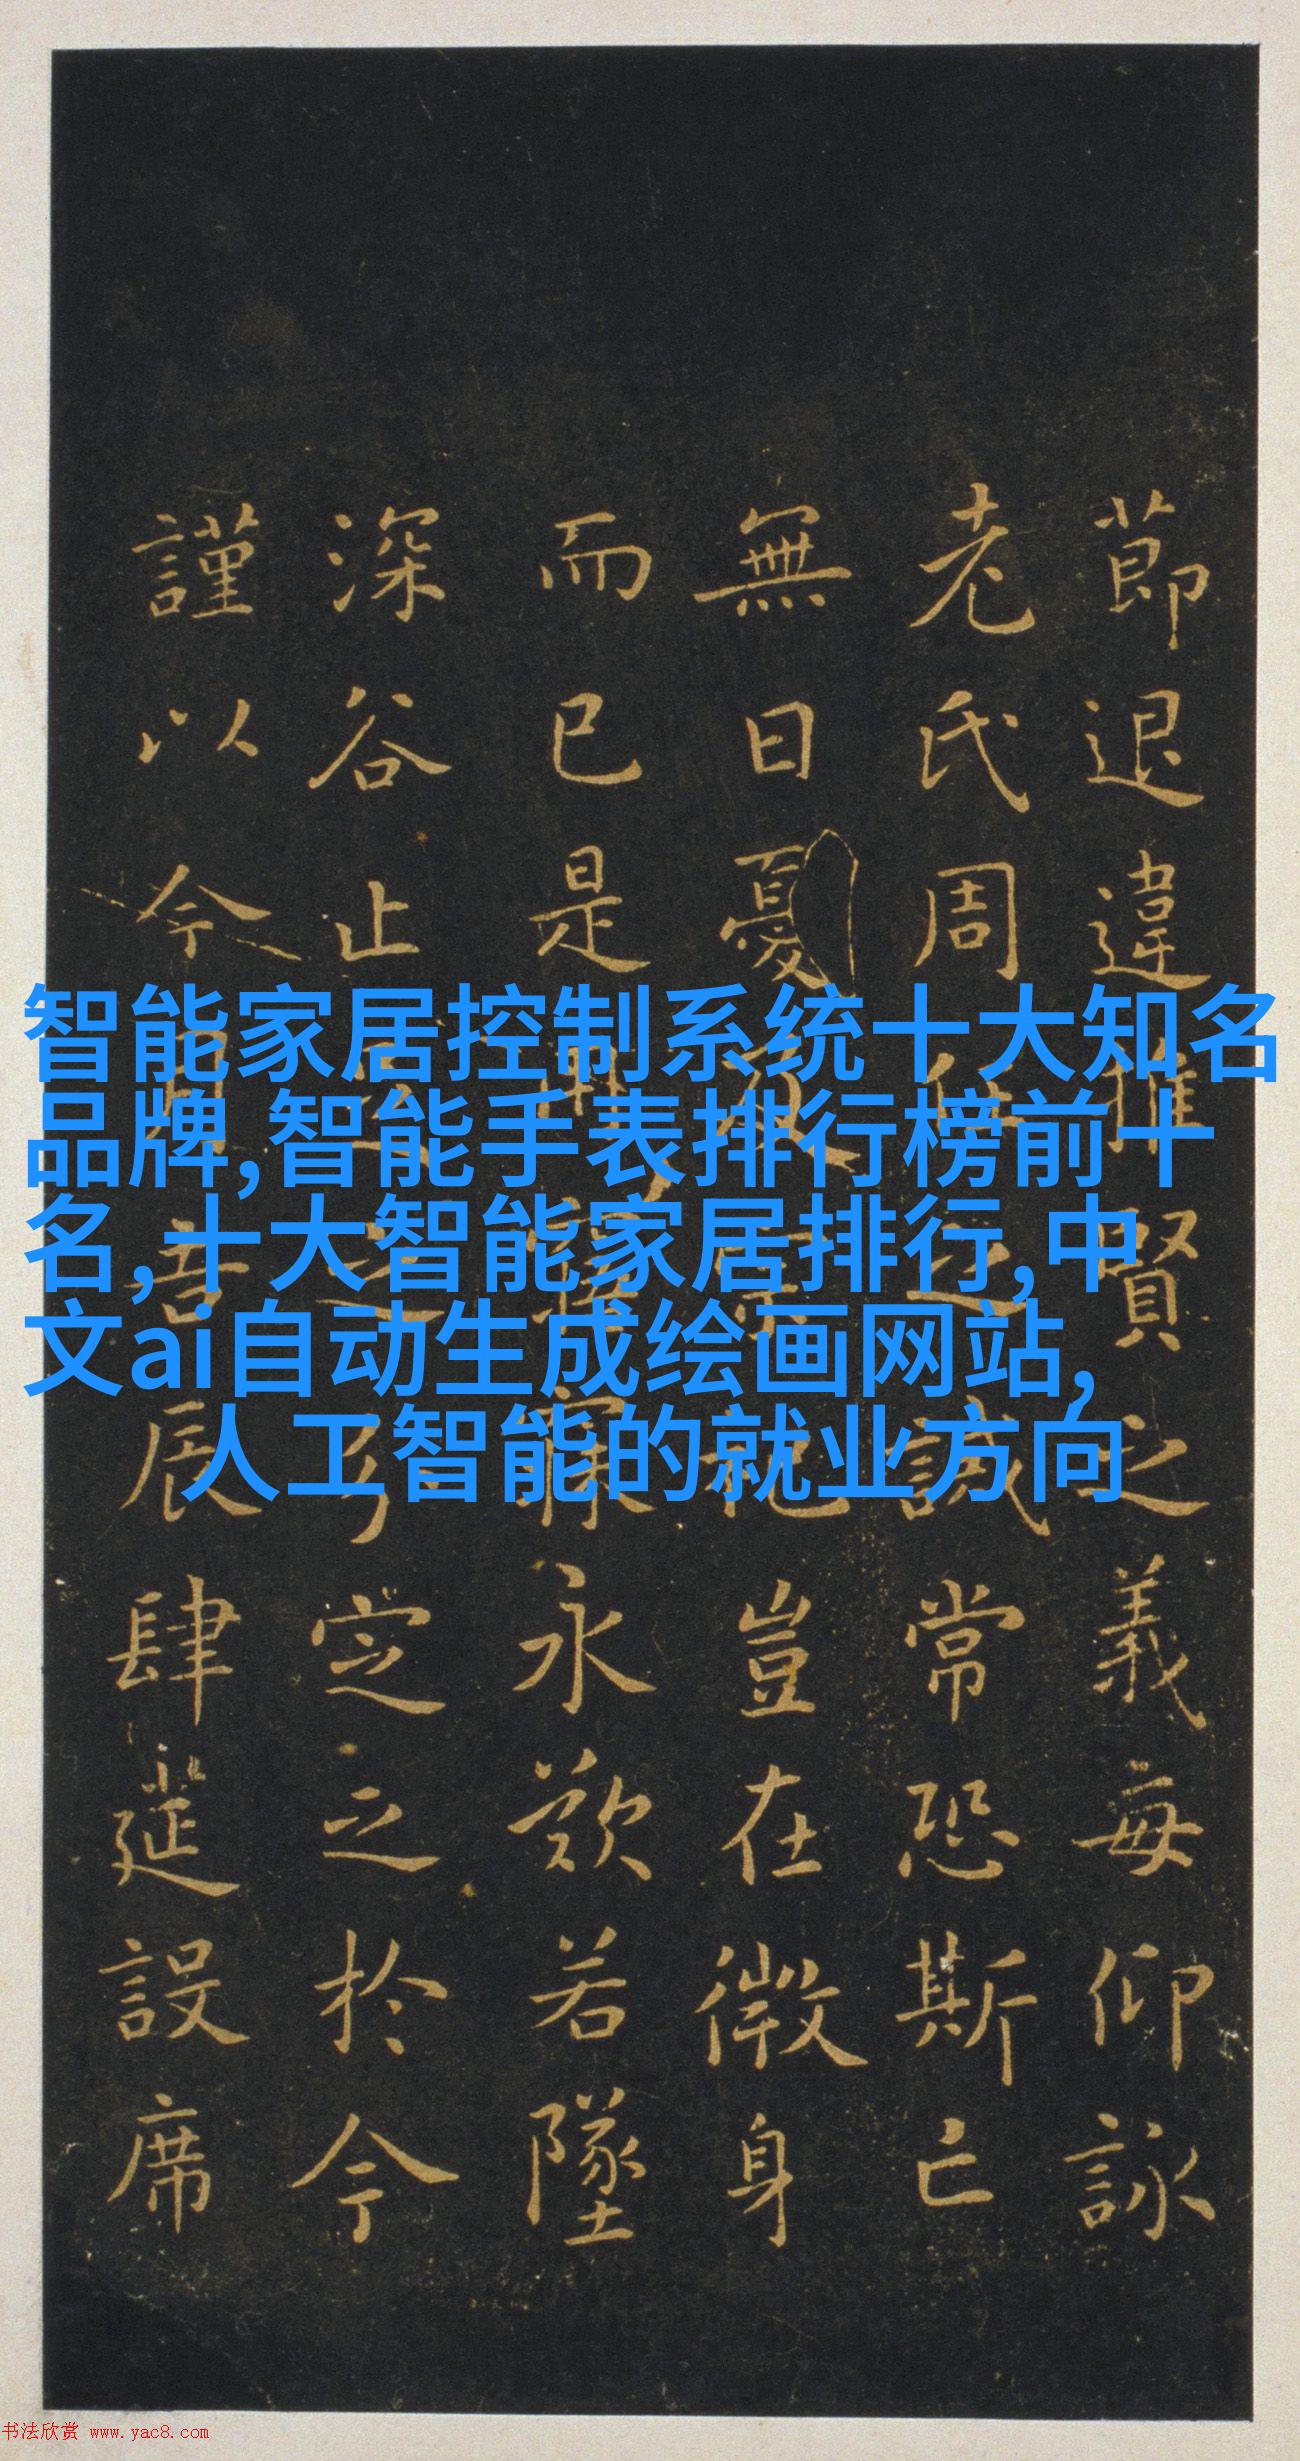 智能家居控制系统十大知名
品牌,智能手表排行榜前十
名,十大智能家居排行,中
文ai自动生成绘画网站,
人工智能的就业方向
節退違推賢之義每仰詠
老氏周任之誡常恐斯亡
無日憂及宗祀豈在微身
而已是用寤寐永歎若墜
深谷止足之分定之於今
謹以今月吉辰肆筵設席
书法欣赏 www.yac8.com